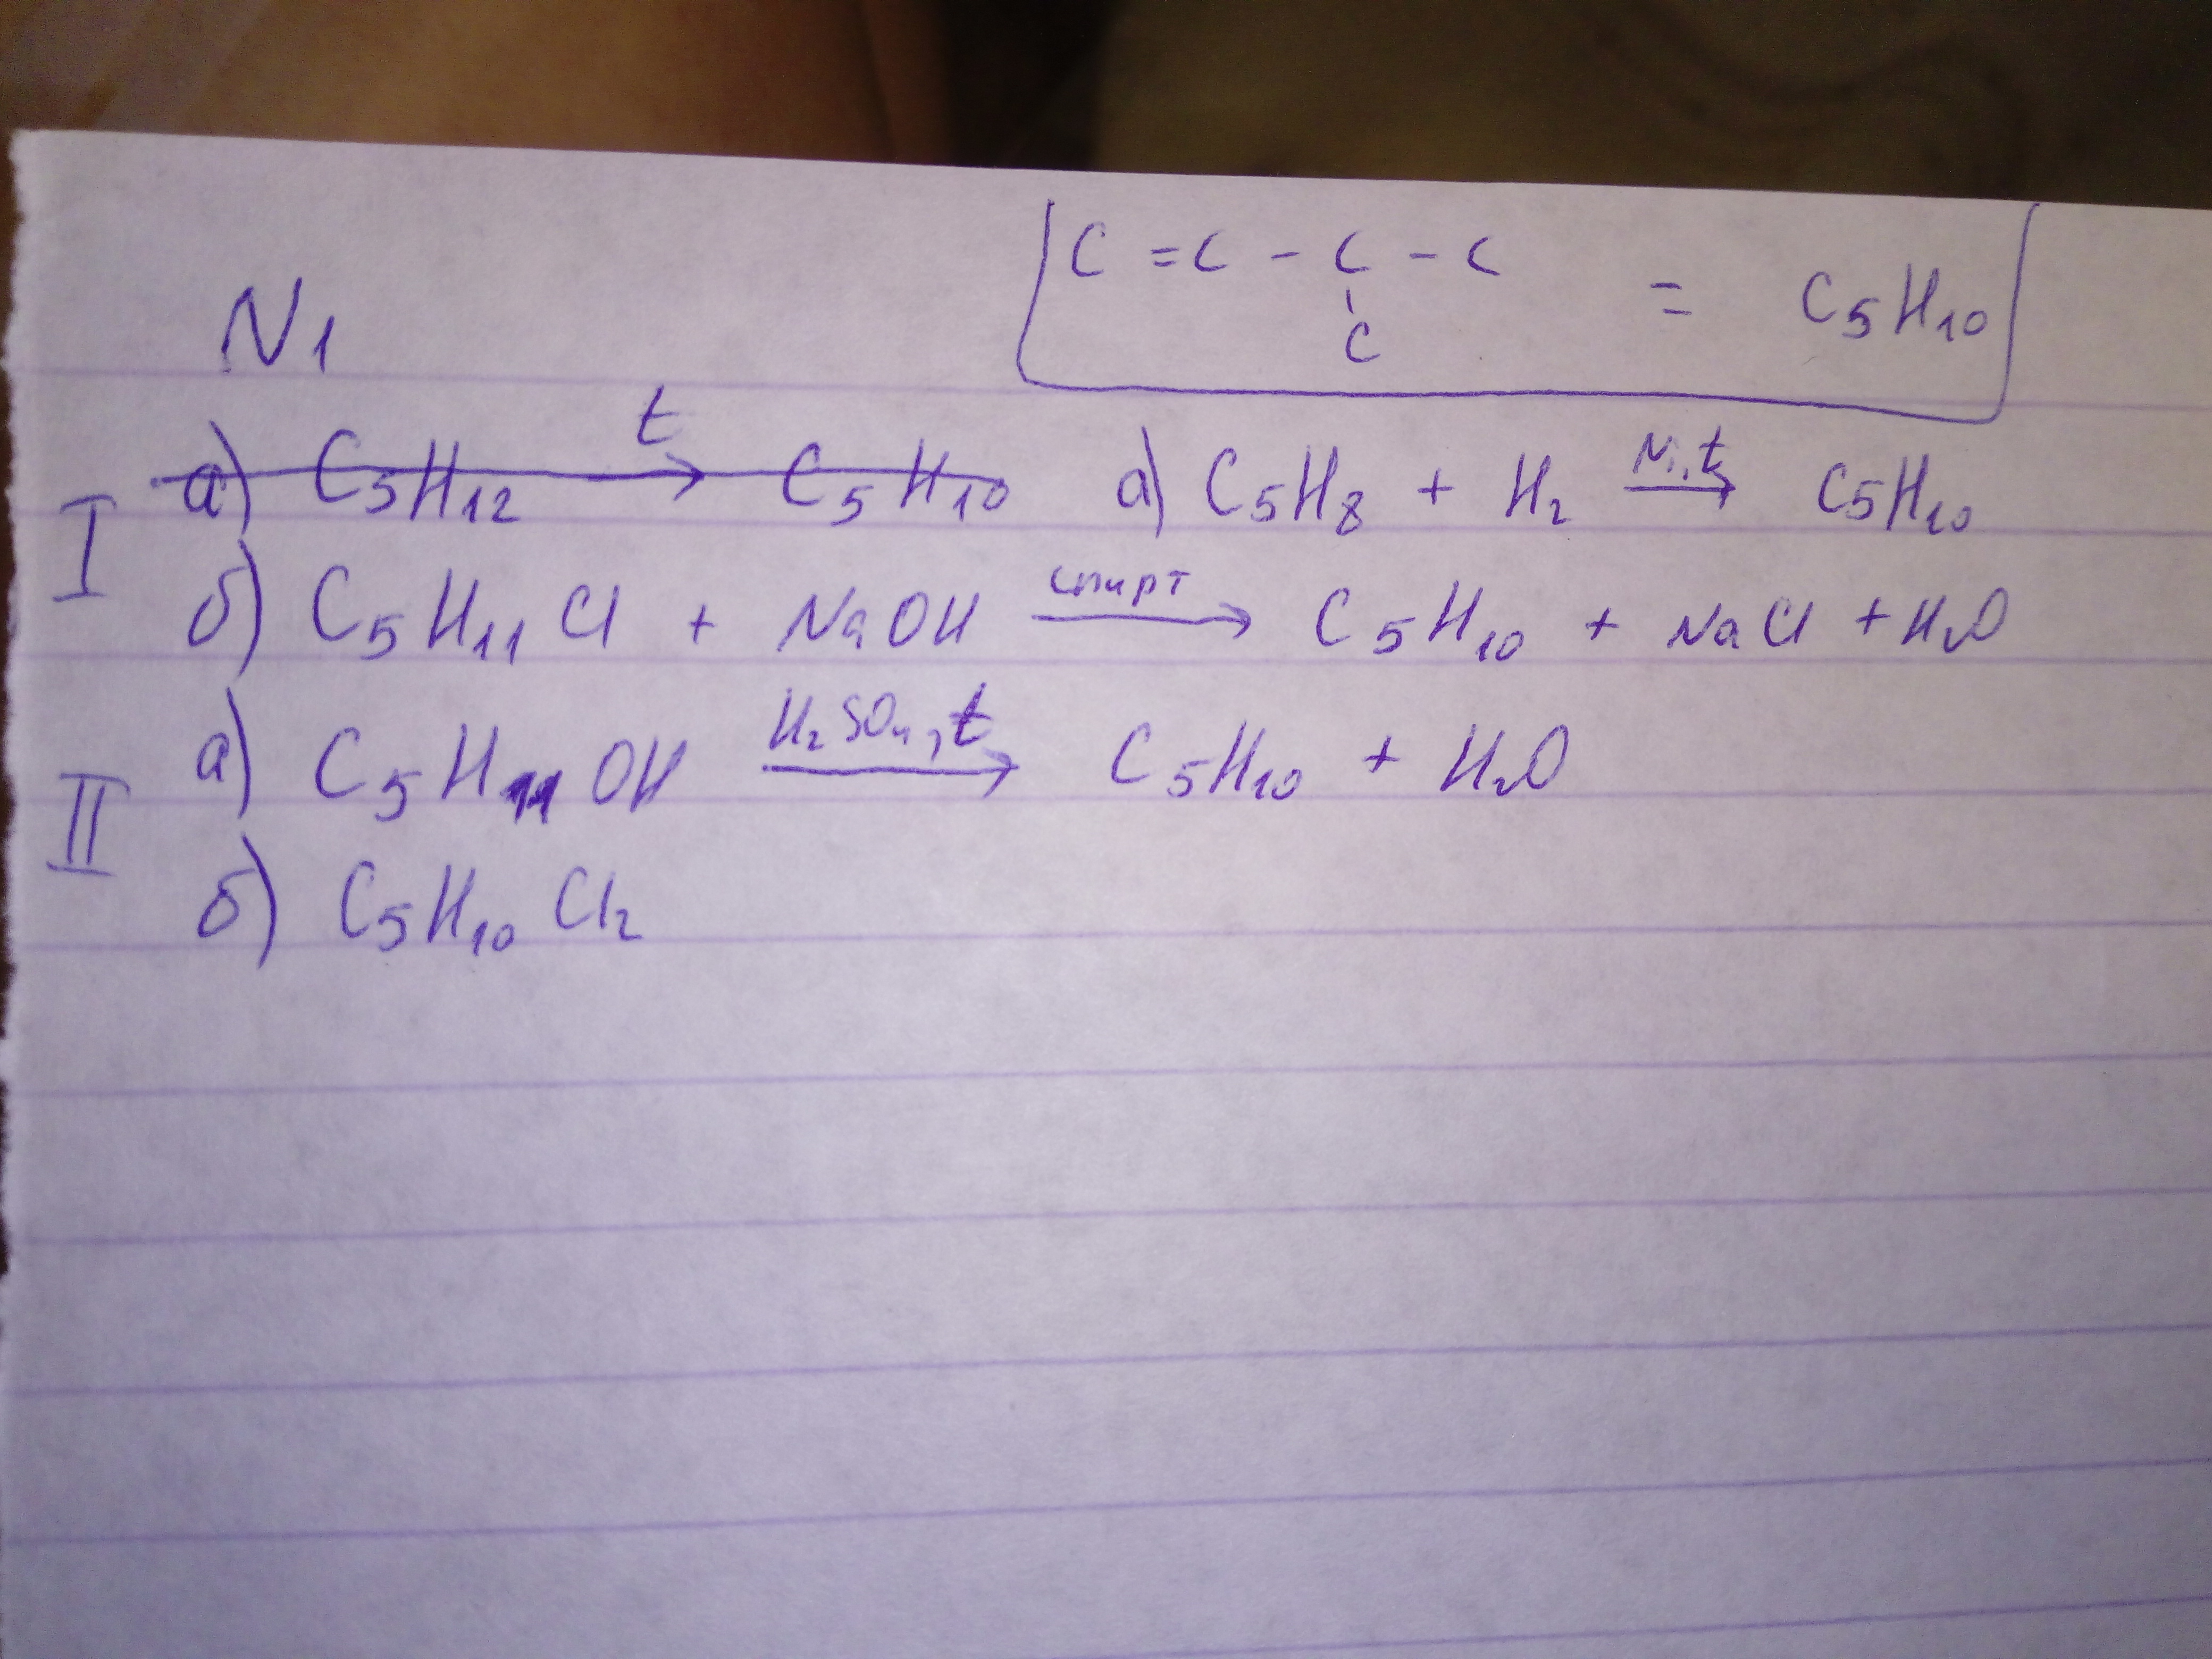 C = C - C - C = C5H10
C
N1
I
а) C5H12 t → C5H10 а) C5H8 + H2 Ni, t → C5H10
б) C5H11Cl + NaOH спирт → C5H10 + NaCl + H2O
II
а) C5H11OH H2SO4, t → C5H10 + H2O
б) C5H10Cl2